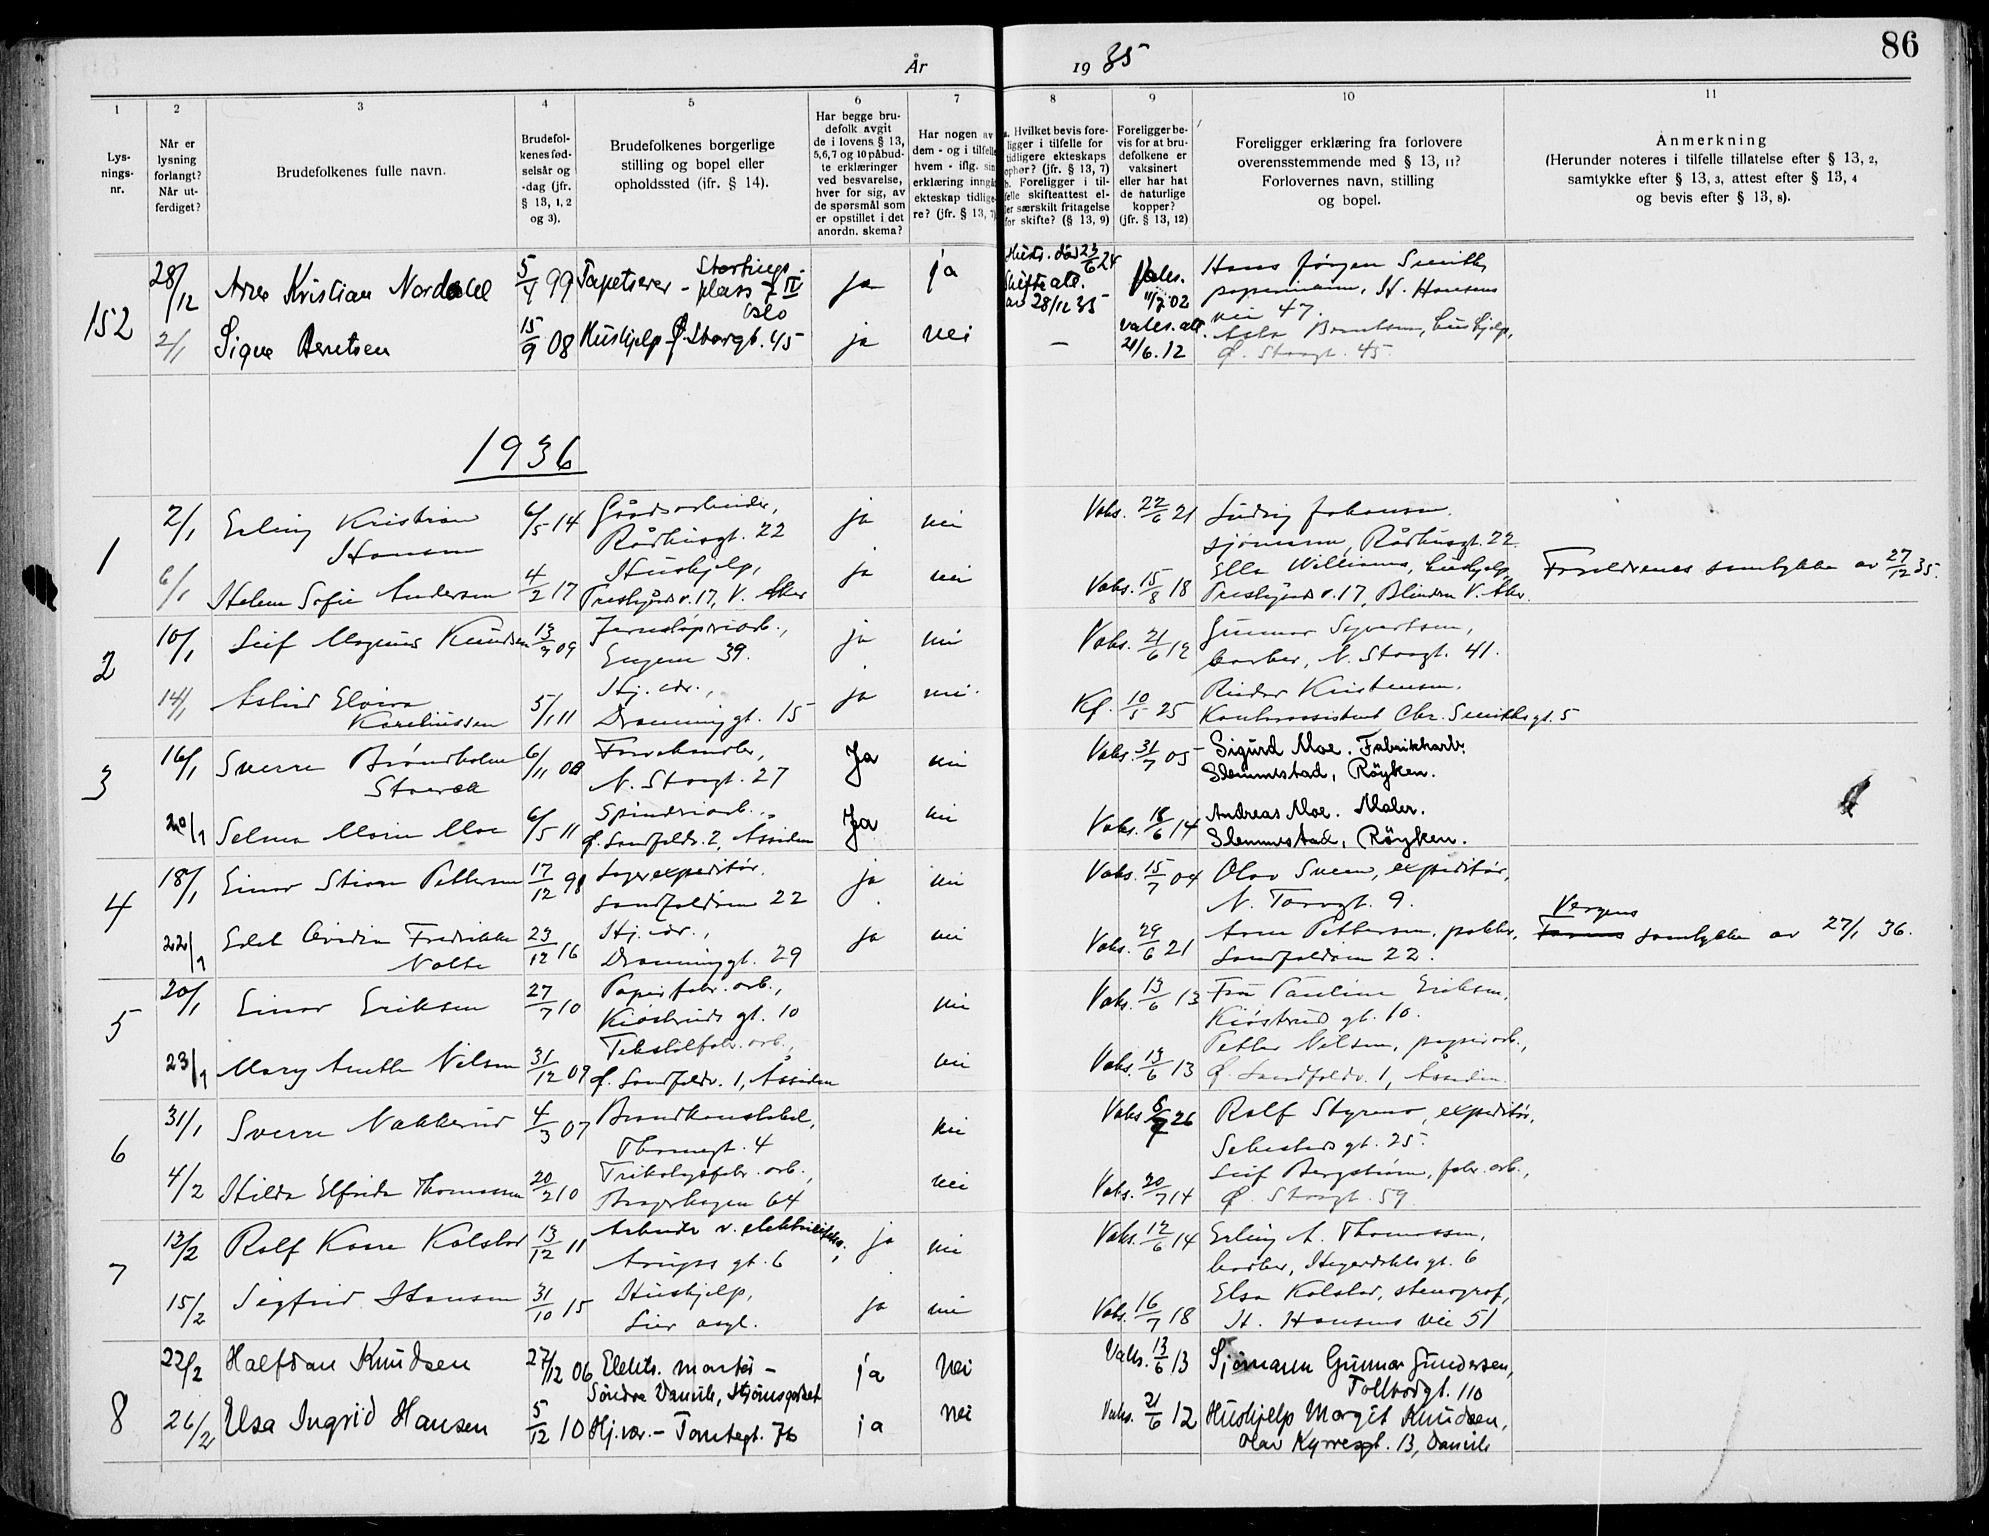 86
År 1935
1
2
3
4
5
6
7
8
9
10
11
Lys-
nings-
nr.
Når er
lysning
forlangt?
Når ut-
ferdiget?
Brudefolkenes fulle navn.
Brudefol-
kenes fød-
selsår og
-dag (jfr.
§ 13, 1, 2
og 3).
Brudefolkenes borgerlige
stilling og bopel eller
opholdssted (jfr. § 14).
Har begge bru-
defolk avgit
de i lovens § 13,
5,6,7 og 10 påbud-
te erklæringer
ved besvarelse,
hver for sig, av
de spørsmål som
er opstillet i det
anordn. skema?
Har nogen av
dem - og i tilfelle
hvem - iflg. sin
erklæring inngå
ekteskap tidlige-
re? (jfr. § 13, 7)
a. Hvilket bevis fore-
ligger i tilfelle for
tidligere ekteskaps
ophør? (jfr. § 13, 7)
b. Foreligger i til-
felle skifteattest el-
ler særskilt fritagelse
for skifte? (§ 13, 9)
Foreligger be-
vis for at bru-
defolkene er
vaksinert
eller har hat
de naturlige
kopper?
(jfr. § 13, 12)
Foreligger erklæring fra forlovere
overensstemmende med § 13, 11?
Forlovernes navn, stilling
og bopel.
Anmerkning
(Herunder noteres i tilfelle tillatelse efter § 13, 2,
samtykke efter § 13, 3, attest efter § 13, 4
og bevis efter § 13, 8).
152
28/12 Arne Kristian Nordahl 5/4 99 Tapetserer - Stortings-
plass 7 IV
Oslo ja ja død 23/6 24
Skifteatt.
av 28/12 35 Vaks.
11/7 02 Hans Jørgen Smith,
papirmann, H. Hansens
vei 47.
2/1 Signe Berntsen 15/9 08 Hushjelp Ø. Storgt. 45 ja nei — Vaks. att
21/6.12 Berntsen, hushjelp,
Ø. Storgt. 45.
1936
1
2/1 Erling Kristian
Hansen 6/5 14 Gårdsarbeider,
Rådhusgt. 22 ja nei Vaks. 22/6 21 Ludvig Johansen.
sjømann, Rådhusgt. 22.
6/1 Helene Sofie Andersen 4/2 17 Hushjelp,
v. 17, V. Aker ja nei Vaks. 15/8 18 Ella Williams, hushjelp,
v. 17, Blindern V. Aker. Foreldrenes samtykke av 27/12 35.
2
10/1 Leif Magnus Knudsen 13/7 09
Engene 39. ja nei Vaks. 21/6 12 Gunnar Syvertsen,
barber, N. Storgt. 41.
14/1 Astrid Elvira
Kareliussen 5/1 11 Hj. vær.,
Dronninggt. 15 ja nei. Kf. 10/5 25 Reidar Kristensen.
Kontorassistent Chr. Smithsgt. 5
3
16/1 Sverre Brøndholm
6/11 08
N. Storgt. 27 Ja nei Vaks. 31/7 05 Sigurd Moe. Fabrikkarb.
Slemmestad, Røyken.
20/1 Selma Marie Moe 6/5 11 Spinneriarb.,
Ø. Sandfaldv. 2, Assiden Ja nei Vaks. 18/6 14 Andreas Moe. Maler.
Slemmestad, Røyken.
4
18/1 Einar Stian Pettersen 17/12 98 Lagerexpeditør.
22 ja nei Vaks. 15/7 04 Olav Sveen, expeditør,
N. Torvgt. 9.
22/1 Edel Fredrikke
Nolte 23/12 16 Hj. vær.,
Dronninggt. 29 ja nei Vaks. 29/6 21 Arne Pettersen, pakker,
22. Vergens
samtykke av 27/1 36.
5
20/1 Einar Eriksen 27/7 10 Papirfabr. arb.,
Kiøsterudsgt. 10 nei Vaks. 13/6 13 Fru Pauline Eriksen.
Kiøsterudsgt. 10.
23/1 Mary Anette Nilsen 31/12 09 Tekstilfabr. arb.,
Ø. Sandfaldv. 1, Assiden nei Vaks. 13/6 13 Petter Nilsen, papirarb.,
Ø. Sandfaldv. 1, Assiden.
6
31/1 Sverre Nakkerud 4/3 07 Brandkonstabel,
Thornegt. 4 nei Vaks 26 Rolf Styrmo, expeditør,
Schestedsgt. 25.
4/2 Hilda Elfrida Thomassen 20/2 10 Trikotagefabr. arb.,
Bragerhagen 64 nei Vaks. 20/7 14 Leif Bergstrøm, fabr. arb.,
Ø. Storgt. 59.
7
13/2 Rolf Kåre Kolstad 13/12 11 Arbeider v.
Arupsgt. 6 ja nei Vaks. 12/6 14 Erling A. Thomassen,
barber, gt. 6
15/2 Sigfrid Hansen 31/10 15 Hushjelp,
Lier asyl. ja nei Vaks. 16/7 18 Elsa Kolstad, stenograf,
H. Hansens vei 51
8
22/2 Halfdan Knudsen 27/12 06 Elektr. montør -
Søndre Vannile, Strømsgodset ja Nei Vaks. 13/6 13 Sjømann Gunnar Gundersen,
Tollbodgt. 110
26/2 Elsa Ingrid Hansen 5/12 10 Hj. vær. - Tomtegt. 76 ja Nei Vaks. 21/6 12 Hushjelp Margit Knudsen,
Olav Kyrresgt. 13, Danvik